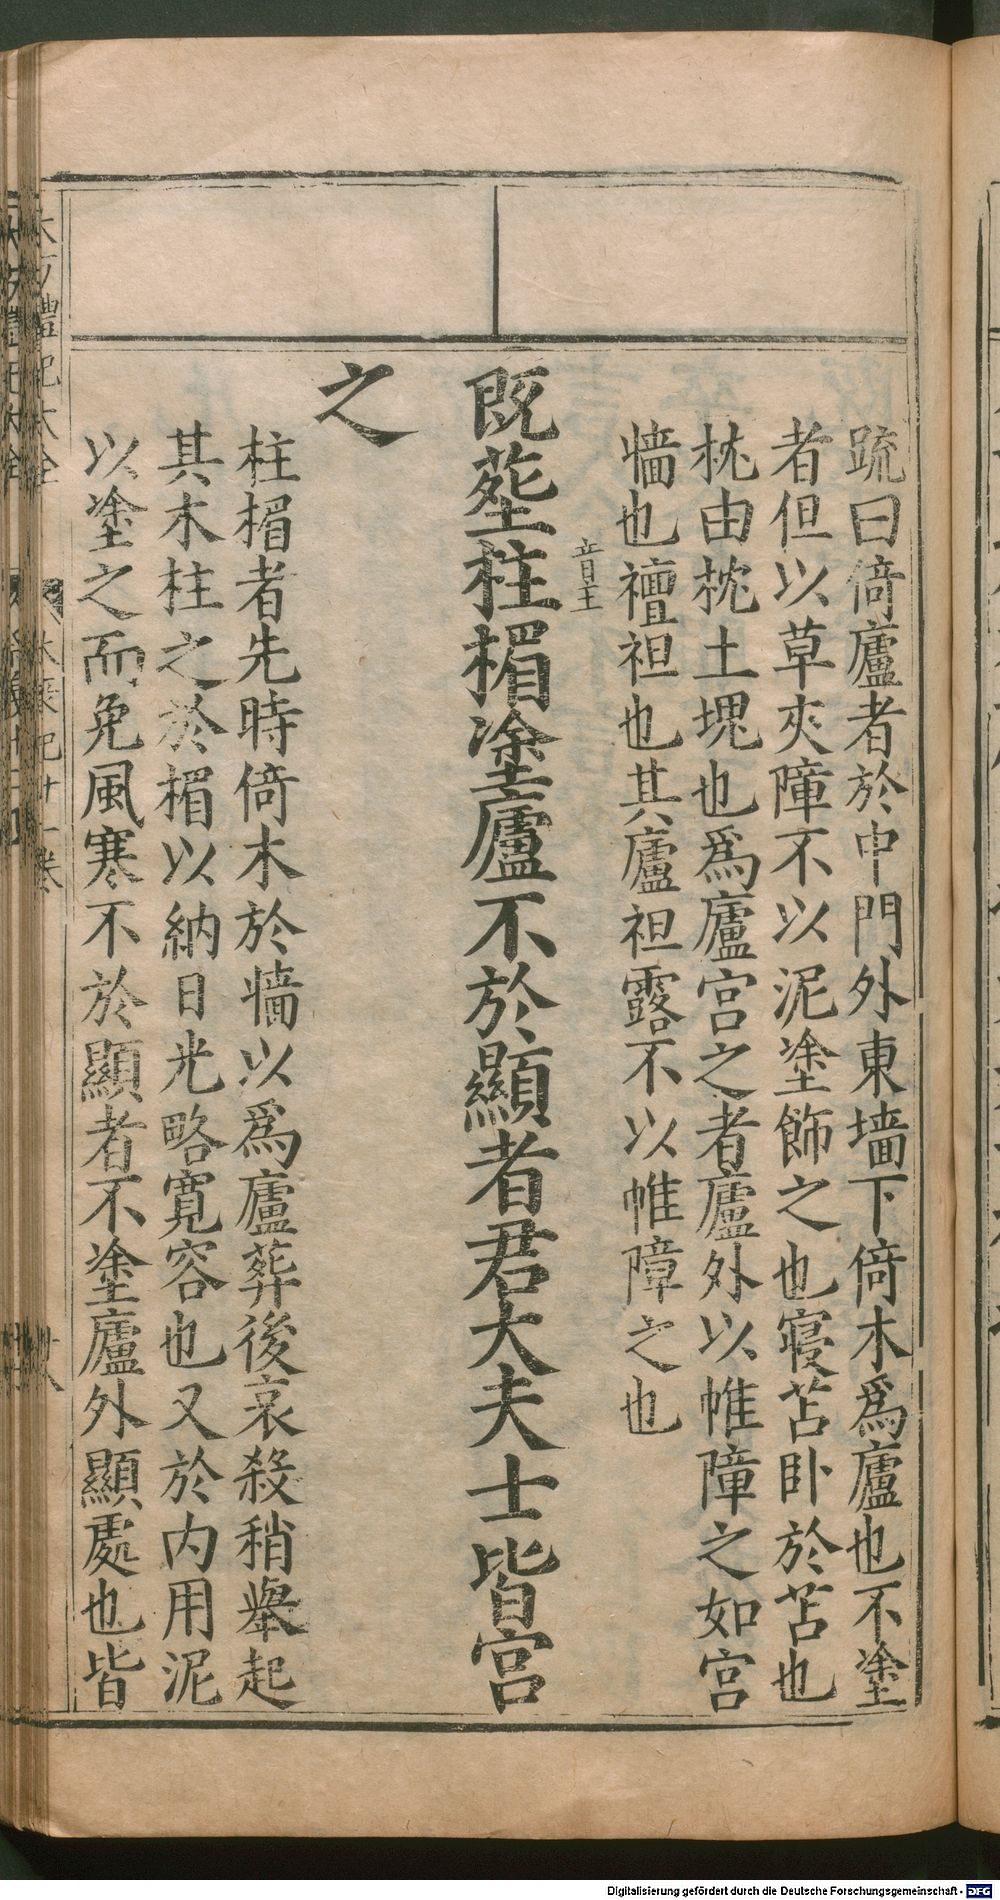 疏曰倚廬者於中門外東墻下倚木爲廬也不塗
者但以草夾障不以泥塗飾之也寢苫臥於苫也
枕由枕土塊也爲廬宫之者廬外以帷障之如宫
墻也襢袒也其廬袒露不以帷障之也
音主
既塟柱楣塗廬不於顯者君大夫士皆宫
之
柱楣者先時倚木於墻以爲廬葬後哀殺稍舉起
其木柱之於楣以納日光略寬容也又於内用泥
以塗之而免風寒不於顯者不塗廬外顯處也皆
Digitalisierung gefördert durch die Deutsche Forschungsgemeinschaft - DFG